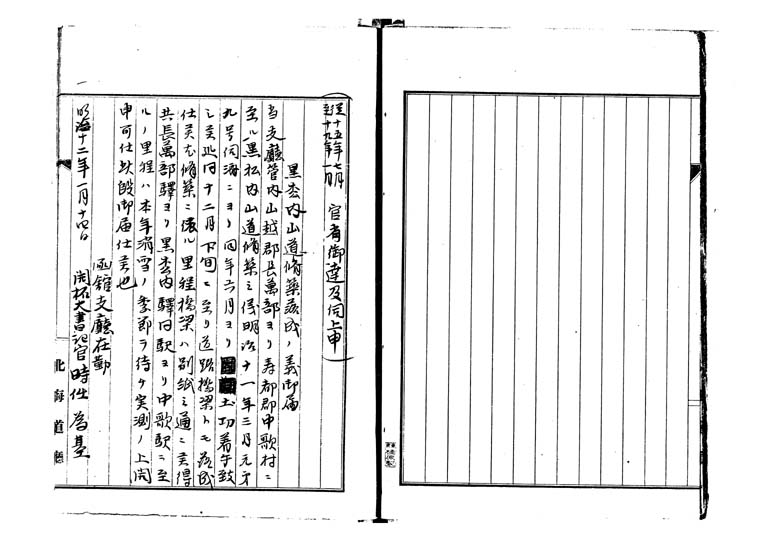 自十五年七月
至十九年一月
官省御達及伺上申
黒松内山道脩築落成ノ義御届
当支廳管内山越郡長萬部ヨリ寿都郡中歌村ニ
至ル黒松内山道脩築之儀明治十一年三月元第
九号伺済ニヨリ同年六月ヨリ土功着手致
シ候処同十二月下旬ニ至リ道路橋梁トモ落成
仕候尤脩築ニ係ル里程橋梁ハ別紙之通ニ候得
共長萬部驛ヨリ黒松内驛同駅ヨリ中歌駅ニ至
ルノ里程ハ本年消雪ノ季節ヲ待チ実測ノ上開
申可仕此段御届仕候也
函館支廳在勤
明治十二年一月十四日
開拓大書記官時任為基
北海道廳